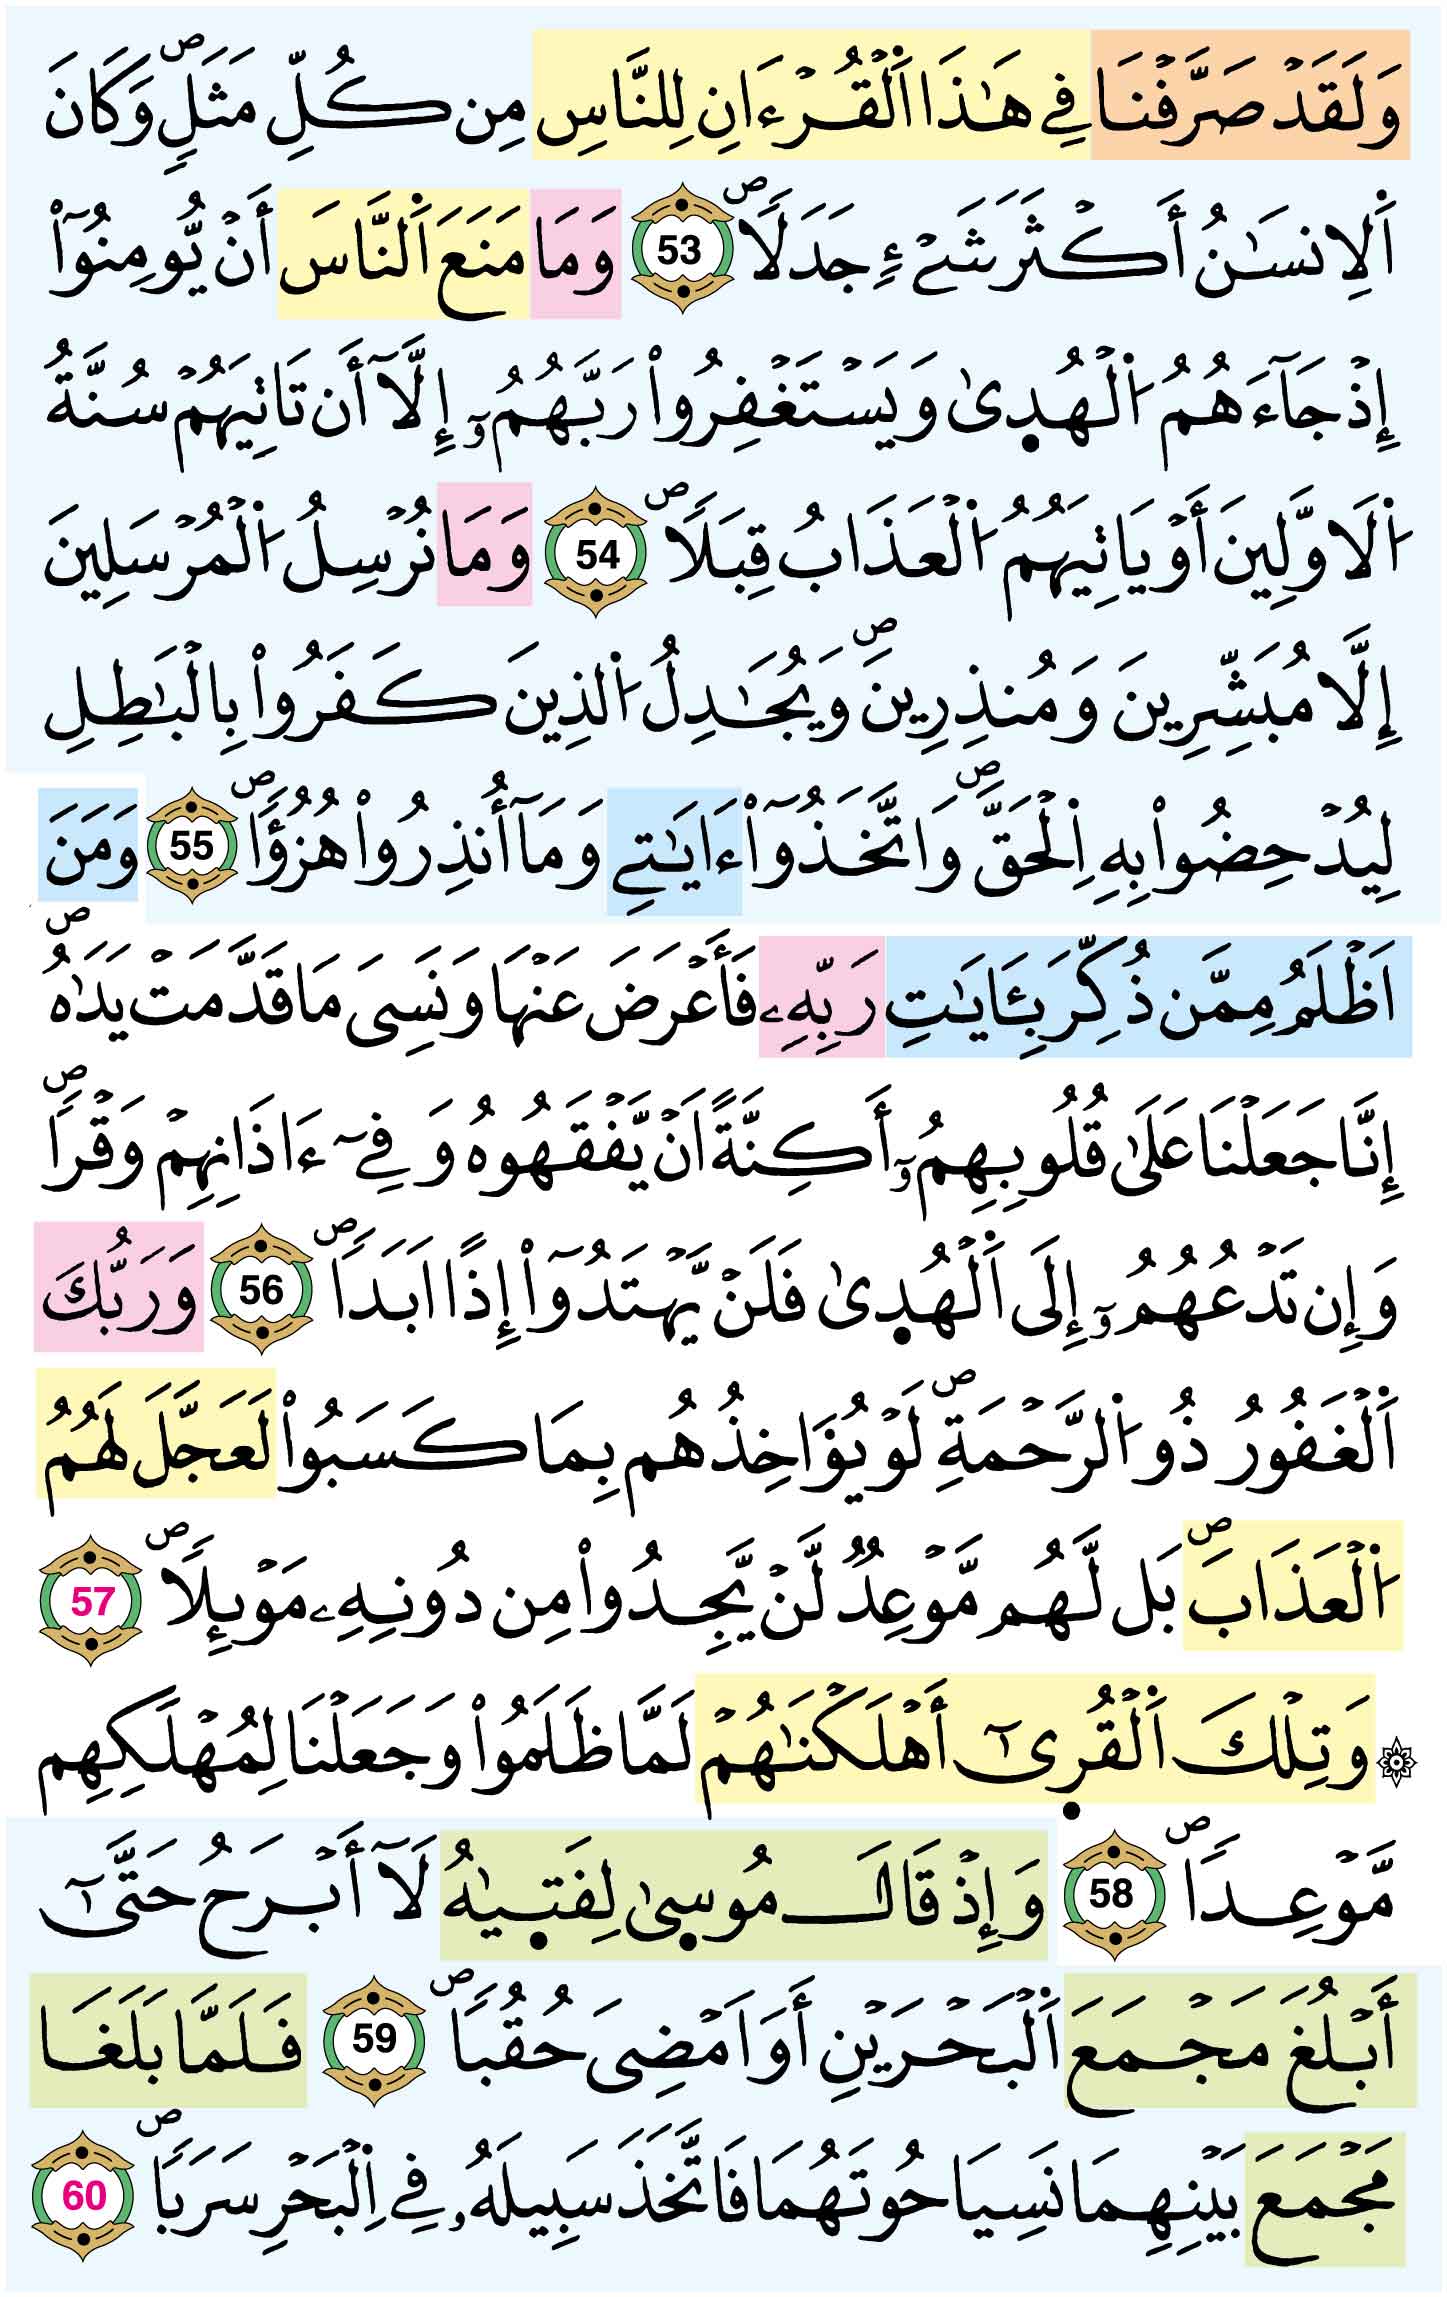 وَلَقَدْ صَرَّفْنَا فِے هَٰذَا اَ۬لْقُرْءَانِ لِلنَّاسِ مِن كُلِّ مَثَلٖۖ وَكَانَ
اَ۬لِانسَٰنُ أَكْثَرَ شَےْءٖ جَدَلاٗۖ 53 وَمَا مَنَعَ اَ۬لنَّاسَ أَنْ يُّومِنُوٓاْ
إِذْ جَآءَهُمُ اُ۬لْهُد۪يٰ وَيَسْتَغْفِرُواْ رَبَّهُمُۥٓ إِلَّآ أَن تَاتِيَهُمْ سُنَّةُ
اُ۬لَاوَّلِينَ أَوْ يَاتِيَهُمُ اُ۬لْعَذَابُ قِبَلاٗۖ 54 وَمَا نُرْسِلُ اُ۬لْمُرْسَلِينَ
إِلَّا مُبَشِّرِينَ وَمُنذِرِينَۖ وَيُجَٰدِلُ اُ۬لذِينَ كَفَرُواْ بِالْبَٰطِلِ
لِيُدْحِضُواْ بِهِ اِ۬لْحَقَّۖ وَاتَّخَذُوٓاْ ءَايَٰتِے وَمَآ أُنذِرُواْ هُزُؤاٗۖ 55 وَمَنَ
اَظْلَمُ مِمَّن ذُكِّرَ بِـَٔايَٰتِ رَبِّهِۦ فَأَعْرَضَ عَنْهَا وَنَسِيَ مَا قَدَّمَتْ يَدَٰهُۖ
إِنَّا جَعَلْنَا عَلَىٰ قُلُوبِهِمُۥٓ أَكِنَّةً اَنْ يَّفْقَهُوهُ وَفِےٓ ءَاذَانِهِمْ وَقْراٗۖ
وَإِن تَدْعُهُمُۥٓ إِلَى اَ۬لْهُد۪يٰ فَلَنْ يَّهْتَدُوٓاْ إِذاً اَبَداٗۖ 56 وَرَبُّكَ
اَ۬لْغَفُورُ ذُو اُ۬لرَّحْمَةِۖ لَوْ يُؤَاخِذُهُم بِمَا كَسَبُواْ لَعَجَّلَ لَهُمُ
اُ۬لْعَذَابَۖ بَل لَّهُم مَّوْعِدٞ لَّنْ يَّجِدُواْ مِن دُونِهِۦ مَوْئِلاٗۖ 57
۞ وَتِلْكَ اَ۬لْقُر۪يٰٓ أَهْلَكْنَٰهُمْ لَمَّا ظَلَمُواْ وَجَعَلْنَا لِمُهْلَكِهِم
مَّوْعِداٗۖ 58 وَإِذْ قَالَ مُوس۪يٰ لِفَت۪يٰهُ لَآ أَبْرَحُ حَتَّىٰٓ
أَبْلُغَ مَجْمَعَ اَ۬لْبَحْرَيْنِ أَوَ اَمْضِيَ حُقُباٗۖ 59 فَلَمَّا بَلَغَا
مَجْمَعَ بَيْنِهِمَا نَسِيَا حُوتَهُمَا فَاتَّخَذَ سَبِيلَهُۥ فِے اِ۬لْبَحْرِ سَرَباٗۖ 60